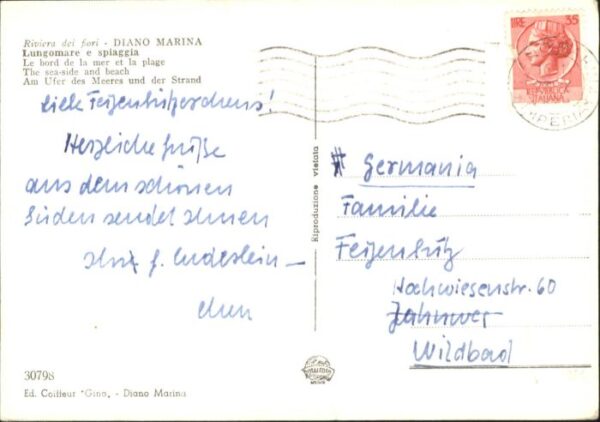 Riviera dei fiori - DIANO MARINA
Lungomare e spiaggia
Le bord de la mer et la plage
The sea-side and beach
Am Ufer des Meeres und der Strand
Liebe
Herzliche Grüße
aus dem schönen
Süden sendet Ihnen
30798
Ed. Coiffeur "Gino„ - Diano Marina
Riproduzione vietata
LIRE 35
REPVBBLICA
ITALIANA
IMPERIA
Germania
Familie
Hochwiesenstr. 60
Wildbad